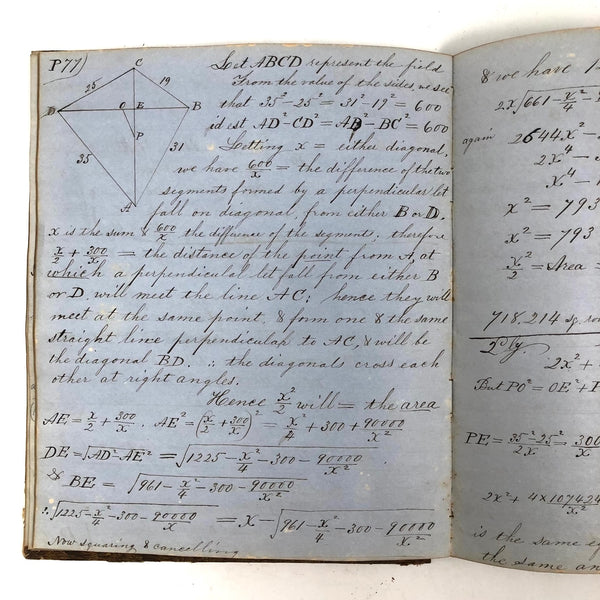 P77)
C
25
19
D
O
E
B
P
35
31
A
Let ABCD represent the field
From the value of the sides, we see
that 35² - 25² = 31² - 19² = 600
id est AD² - CD² = AB² - BC² = 600
Letting x = either diagonal,
we have 600/x = the difference of the two
segments formed by a perpendicular let
fall on diagonal, from either B or D.
x is the sum & 600/x the difference of the segments; therefore
x/2 + 300/x = the distance of the point from A, at
which a perpendicular let fall from either B
or D will meet the line AC; hence they will
meet at the same point & form one & the same
straight line perpendicular to AC, & will be
the diagonal BD. ∴ the diagonals cross each
other at right angles.
Hence x²/2 will = the area
AE = x/2 + 300/x. AE² = (x/2 + 300/x)² = x²/4 + 300 + 90000/x²
DE = √AD² - AE² = √1225 - x²/4 - 300 - 90000/x²
& BE = √961 - x²/4 - 300 - 90000/x²
∴ √1225 - x²/4 - 300 - 90000/x² = x - √961 - x²/4 - 300 - 90000/x²
Now squaring & cancelling
& we have 1
2x√661 - x²/4 - 9
again 2644x²
2x⁴ -
x⁴ - 1
x² = 793
x² = 793
x²/2 = Area =
718,214 sq. ro
2dly.
2x² +
But PO² = OE² + P
PE = 35² - 25²/2x = 300
2x² + 4 x 107424/x²
is the same e
the same an